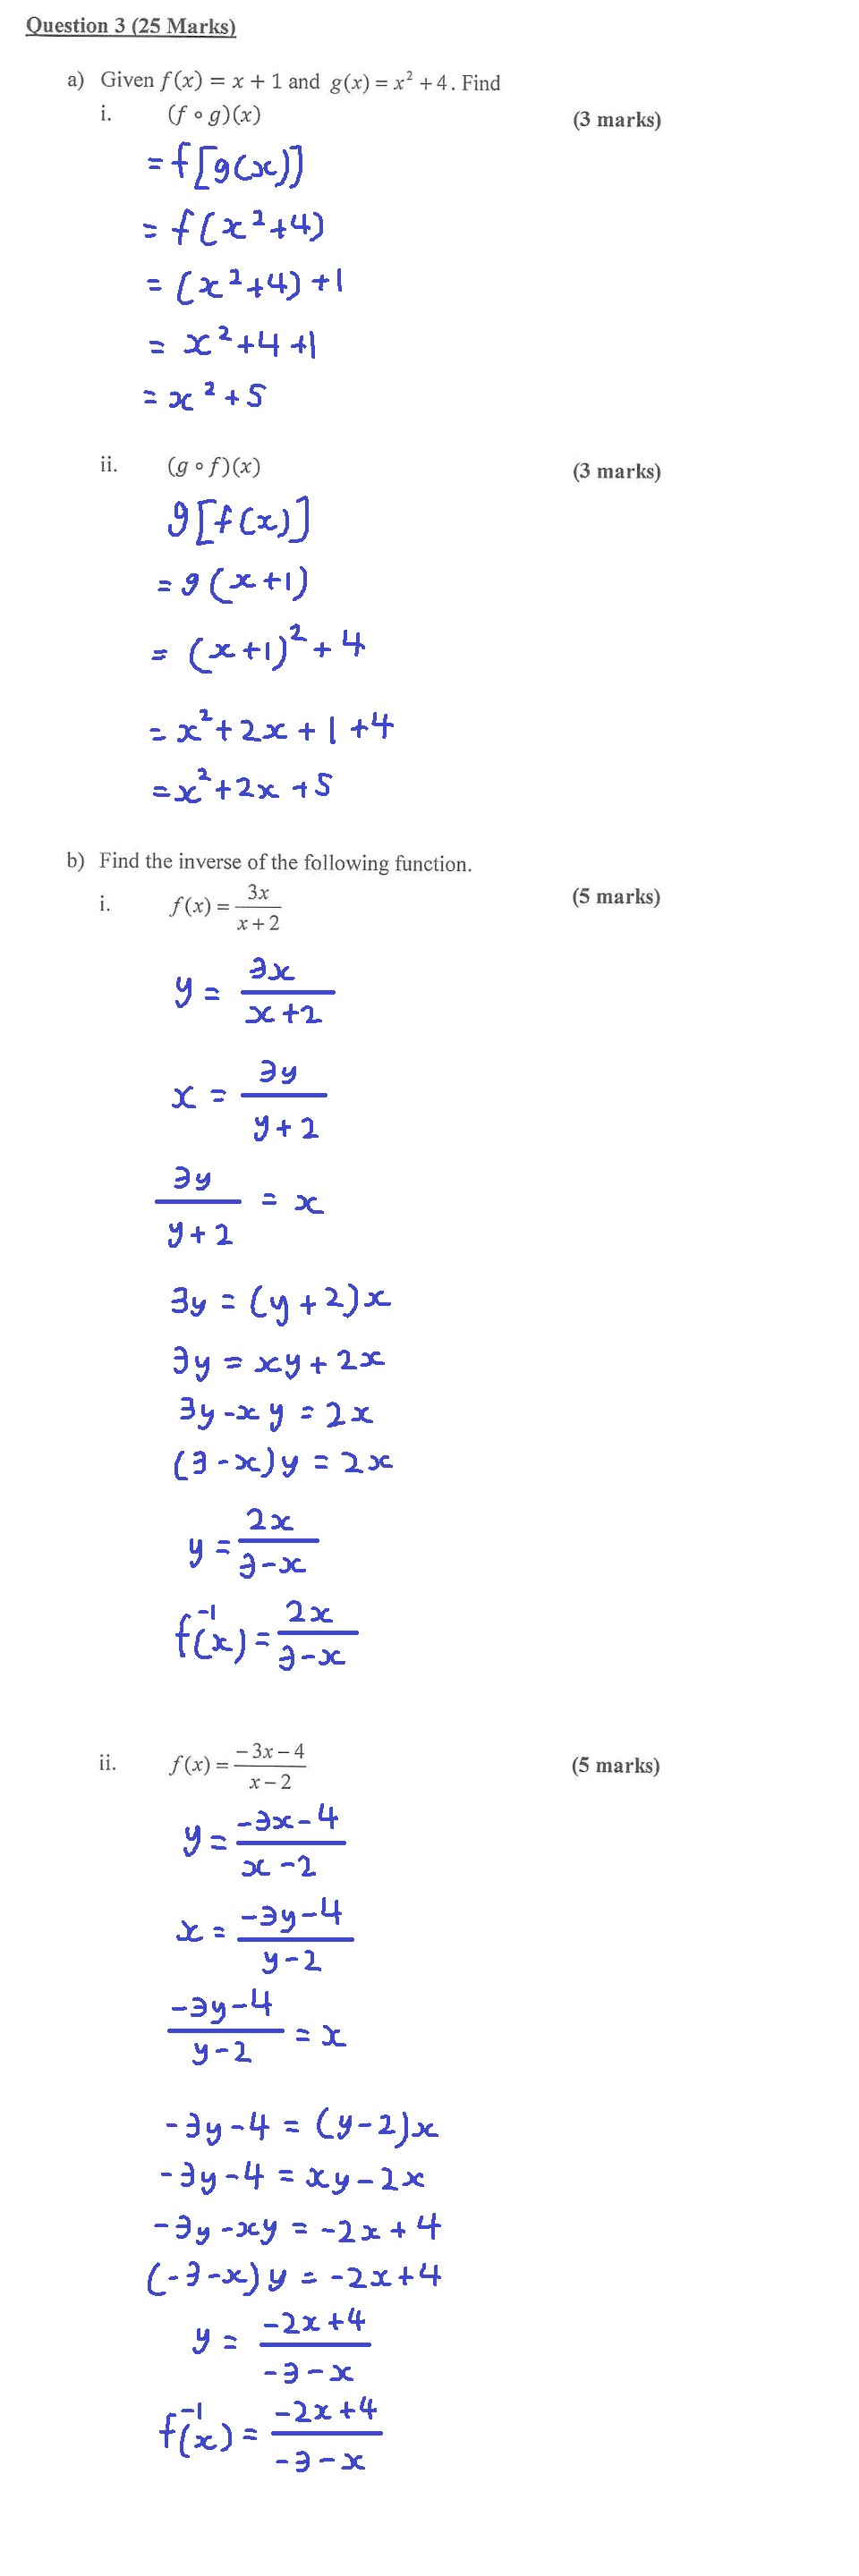 Question 3 (25 Marks)
a) Given f(x) = x + 1 and g(x) = x² + 4. Find
i. (f ∘ g)(x) (3 marks)
= f[g(x)]
= f(x²+4)
= (x²+4)+1
= x²+4+1
= x²+5
ii. (g ∘ f)(x) (3 marks)
g[f(x)]
= g(x+1)
= (x+1)²+4
= x²+2x+1+4
= x²+2x+5
b) Find the inverse of the following function.
i. f(x) = 3x/(x+2) (5 marks)
y = 3x/(x+2)
x = 3y/(y+2)
3y/(y+2) = x
3y = (y+2)x
3y = xy+2x
3y-xy = 2x
(3-x)y = 2x
y = 2x/(3-x)
f⁻¹(x) = 2x/(3-x)
ii. f(x) = (-3x-4)/(x-2) (5 marks)
y = (-3x-4)/(x-2)
x = (-3y-4)/(y-2)
(-3y-4)/(y-2) = x
-3y-4 = (y-2)x
-3y-4 = xy-2x
-3y-xy = -2x+4
(-3-x)y = -2x+4
y = (-2x+4)/(-3-x)
f⁻¹(x) = (-2x+4)/(-3-x)